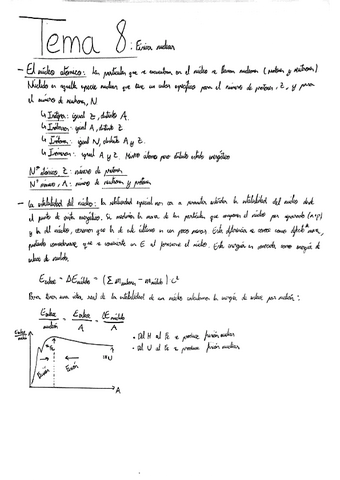 Tema 8: Física nuclear
- El núcleo atómico: Las partículas que se encuentran en el núcleo se llaman nucleones (protones y neutrones)
Núclido es aquella especie nuclear que tiene un valor específico para el número de protones, Z, y para
el número de neutrones, N
↳ Isótopos: igual Z, distinto A.
↳ Isóbaros: igual A, distinto Z.
↳ Isótonos: igual N, distinto A y Z.
↳ Isómeros: igual A y Z. Mismo átomo pero distinto estado energético
Nº atómico, Z: número de protones
Nº másico, A: número de neutrones y protones
- La estabilidad del núcleo: la relatividad especial nos va a permitir estudiar la estabilidad del núcleo desde
el punto de vista energético. Si medimos la masa de las partículas que componen el núcleo por separado (n+p)
y la del núcleo, veremos que la de este último es un poco menor. Esta diferencia se conoce como defecto masa,
pudiendo considerarse que se convierte en E al formarse el núcleo. Esta energía es conocida como energía de
enlace de núcleo.
E enlace = ΔE núcleo = (Σ m nucleones - m núcleo) c²
Para tener una idea real de la estabilidad de un núcleo calculamos la energía de enlace por nucleón:
E enlace / nucleón = E enlace / A = ΔE núcleo / A
E enlace / nucleón
Fe
U
Fusión
Fisión
A
• Del H al Fe se produce fusión nuclear
• Del U al Fe se produce fisión nuclear